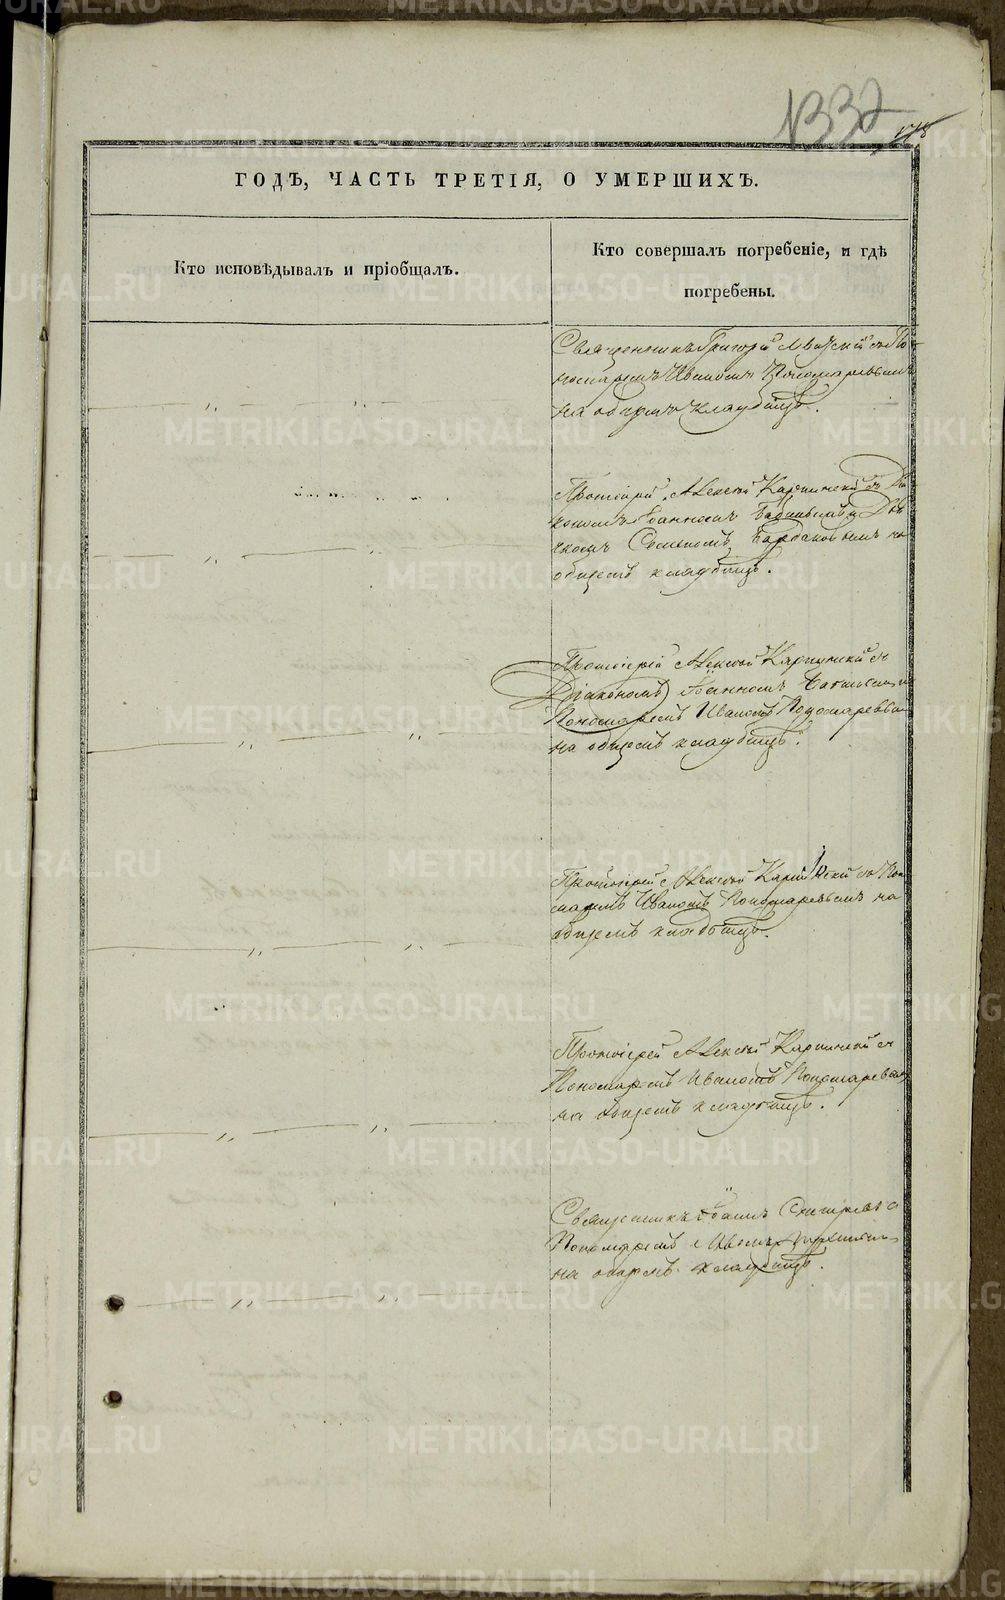 1332
178
ГОДЪ, ЧАСТЬ ТРЕТІЯ, О УМЕРШИХЪ.
Кто исповѣдывалъ и пріобщалъ.
Кто совершалъ погребеніе, и гдѣ
погребены.
Священникъ Григорій съ По-
номаремъ Иваномъ Пономаревымъ
на общемъ кладбищѣ.
Протоіерей Алексѣй Карпинскій съ Діа-
кономъ Іоанномъ и Дья-
чкомъ Семеномъ Бардаковымъ на
общемъ кладбищѣ.
Протоіерей Алексѣй Карпинскій съ
Діакономъ Іоанномъ и
Пономаремъ Иваномъ Пономаревымъ
на общемъ кладбищѣ.
Протоіерей Алексѣй Карпинскій съ Поно-
маремъ Иваномъ Пономаревымъ на
общемъ кладбищѣ.
Протоіерей Алексѣй Карпинскій съ
Пономаремъ Иваномъ Пономаревымъ
на общемъ кладбищѣ.
Священникъ съ
Пономаремъ
на общемъ кладбищѣ.
METRIKI.GASO-URAL.RU